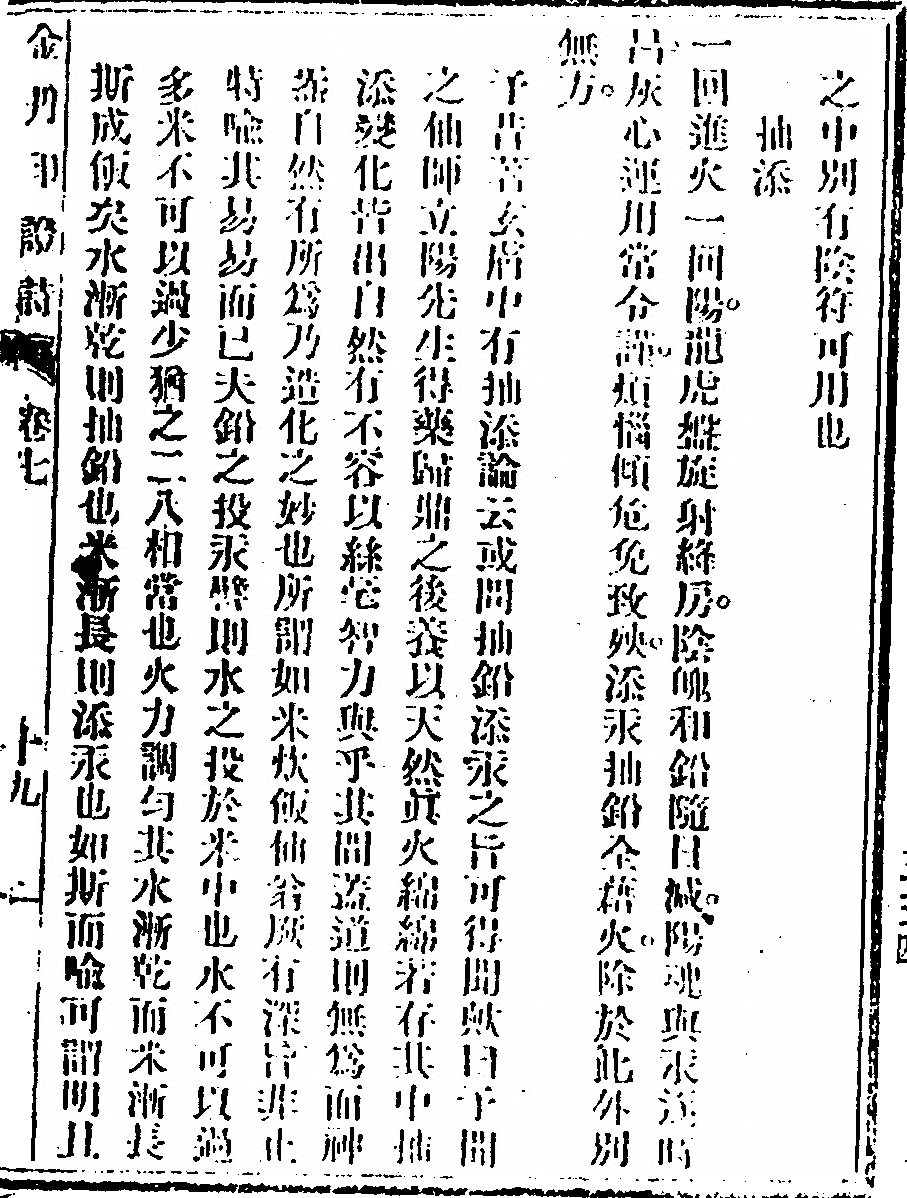 之中別有陰符可用也
抽添
一回進火一回陽龍虎盤旋射絳房陰魄和鉛隨日減陽魂與汞逐時
昌灰心運用常令謹煩惱傾危免致殃添汞抽鉛全藉火除於此外別
無方
予昔著玄膚中有抽添論云或問抽鉛添汞之旨可得聞歟曰予聞
之仙師立陽先生得藥歸鼎之後養以天然真火綿綿若存其中抽
添變化皆出自然有不容以絲毫智力與乎其間蓋道則無為而神
器自然有所為乃造化之妙也所謂如米炊飯仙翁厥有深旨非止
特喻其易易而已夫鉛之投汞譬則水之投於米中也水不可以過
多米不可以過少猶之二八相當也火力調勻其水漸乾而米漸長
斯成飯矣水漸乾則抽鉛也米漸長則添汞也如斯而喻可謂明且
金丹印證詩 卷七 十九